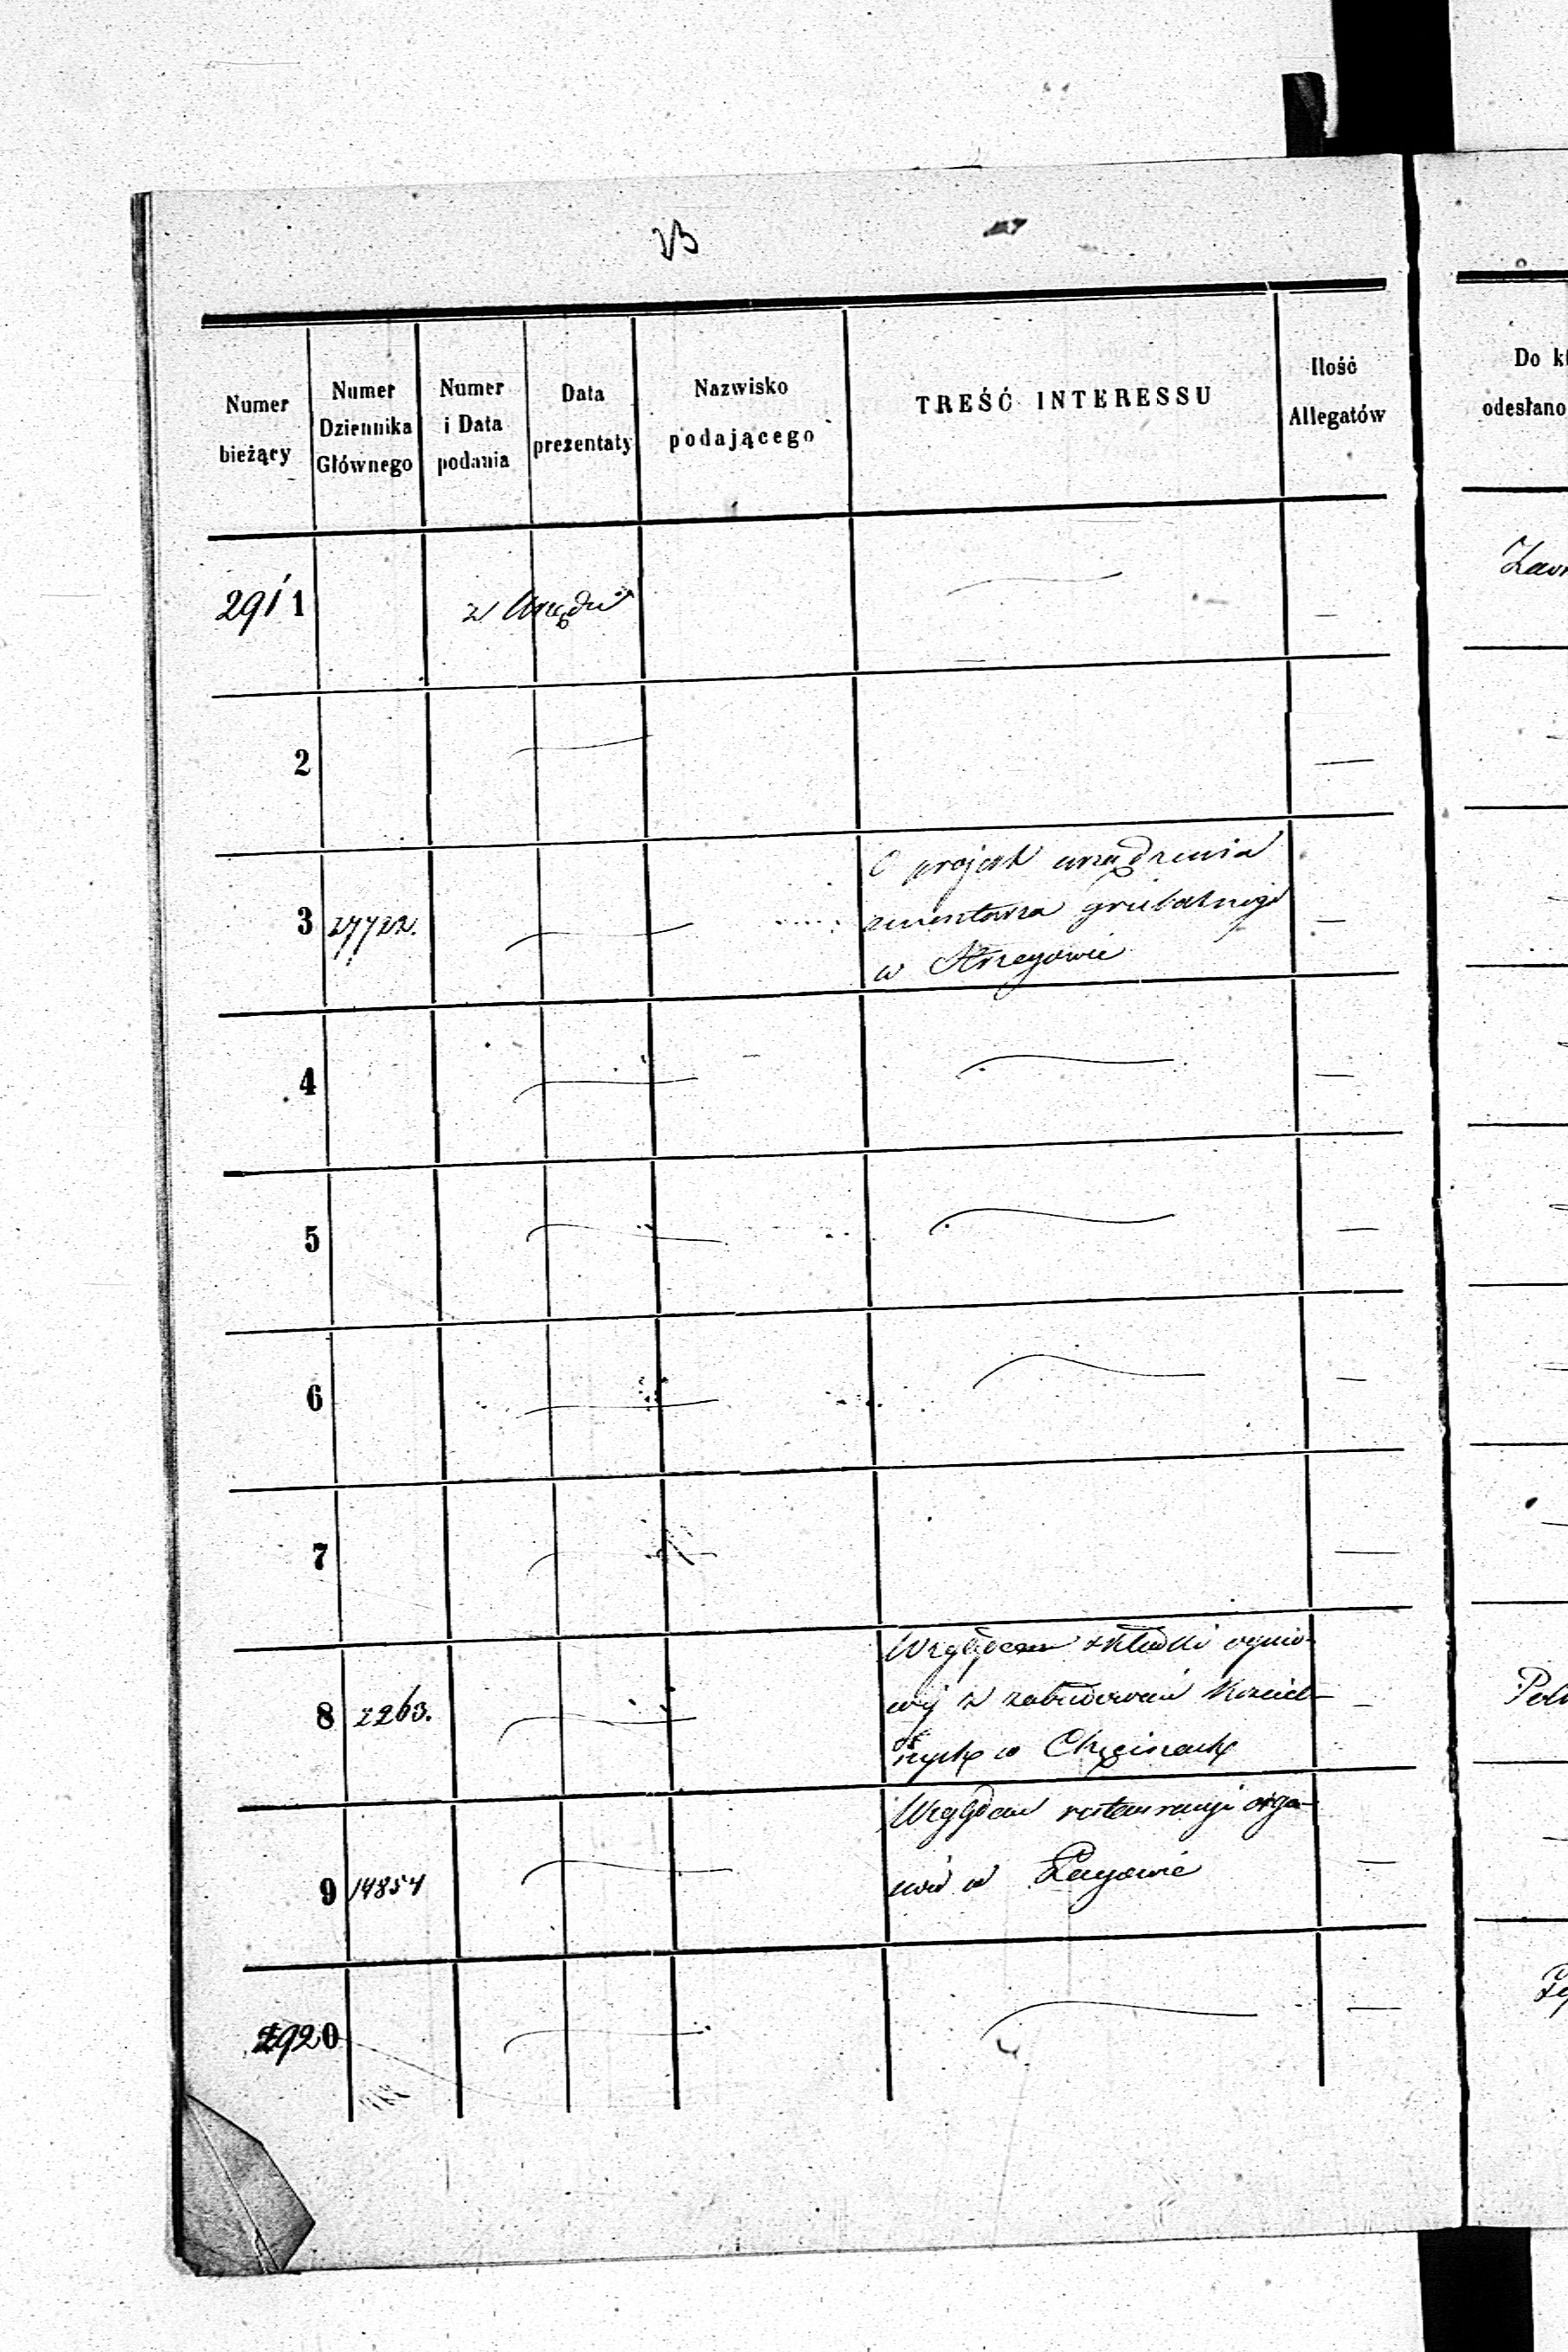 Numer
bieżący
Numer
Dziennika
Głównego
Numer
i Data
podania
Data
prezentaty
Nazwisko
podającego
TREŚĆ INTERESSU
Ilość
Allegatów
Do
odesłano
2911
z Urzędu
2
3
27722.
O projekt urządzenia
cmentarza grzebalnego
w
4
5
6
7
8
2263.
Względem składki ognio-
wej z zabudowań Kościel-
nych w Chęcinach
9
14854
Względem restauracyi orga-
nów w Łagowie
2920